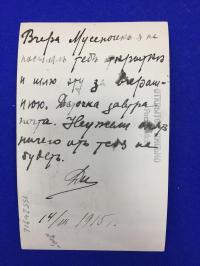 Вчера Мусенокъ я не
послалъ тебѣ открытки
и шлю эту за вчераш-
нюю. Дорочка завтра
почта. Неужели опять
ничего отъ тебя не
будетъ.
14/III 1915 г.